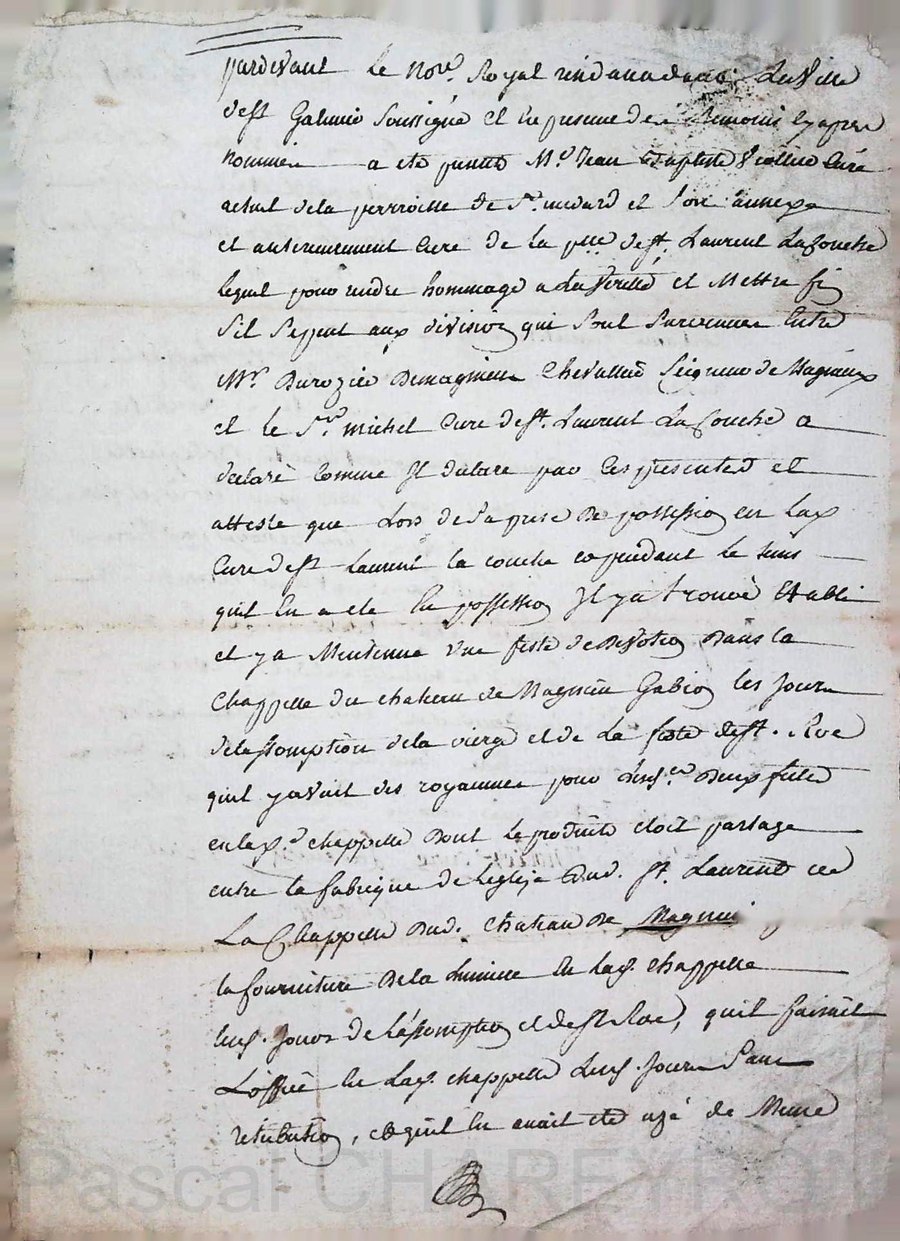 pardevant le nore. Royal
dest Galmié soussigné et en presence de temoins cy apres
nommés a eté present Mre. Jean Baptiste curé
actuel dela perroisse de St. medard et son annexe
et anterieurement curé de la psse dest. Laurent La Couche
lequel pour rendre hommage a La Verité et Mettre fin
sil se peut aux division qui sont survenues Entre
Mr. Durozier Demagnieu Chevallier Seigneur de Magnieux
et le Sr. michel Curé dest. Laurent La Couche a
declaré Comme Il declare par Ces presentes et
atteste que Lors de sa prise de possession en Lad
Cure dest Laurent la couche et pendant le tems
quil En a eté En possession Il y a trouvé Etabli
et y a Mentenue une feste de devotion Dans la
Chappelle du chateau de Magnieu Gabion les Jours
delassomption dela vierge et de La feste dest. Roc
quil y avait des royaumes pour Desd. Deux festes
en lad. chappelle dont Le produit etoit partagé
entre la fabrique de leglise Dud. St. Laurent
La Chappelle Dud. Chateau De Magnieu
la fourniture De la Lumiere En Lad. chappelle
lesd. Jours de L'assomption et dest Roc, quil faisait
L'office En Lad. chappelle Lesd. Jours Sans
retribution, et quil En avait eté usé de Meme
Pascal CHAREYRON